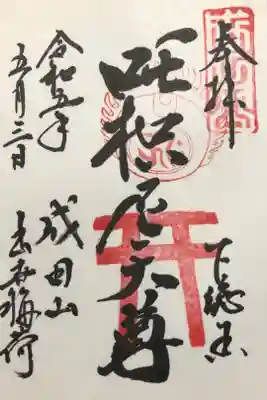 奉拝
下総国
吒枳尼天尊
令和五年
五月三日
成田山
出世稲荷